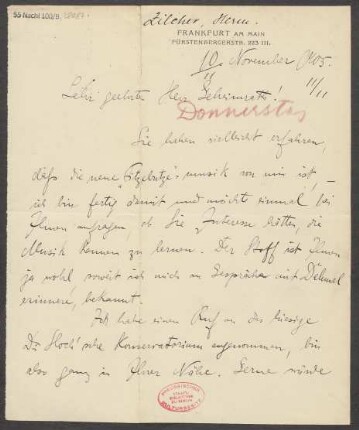 55 Nachl 100/B,
Zilcher, Herm.
FRANKFURT AM MAIN
FÜRSTENBERGERSTR. 223 III.
10. November 1905.
11/11
Sehr geehrter Herr Geheimrath!
Donnerstag
Sie haben vielleicht erfahren,
daß die neue „Fitzebutze“ musik von mir ist, –
ich bin fertig damit und möchte einmal bei
Ihnen anfragen, ob Sie Interesse hätten, die
Musik kennen zu lernen. Der Stoff ist Ihnen
ja wohl, soweit ich mich an Gespräche mit Dehmel
erinnere, bekannt.
Ich habe einen Ruf an das hiesige
Dr. Hoch'sche Konservatorium angenommen, bin
also ganz in Ihrer Nähe. Gerne würde